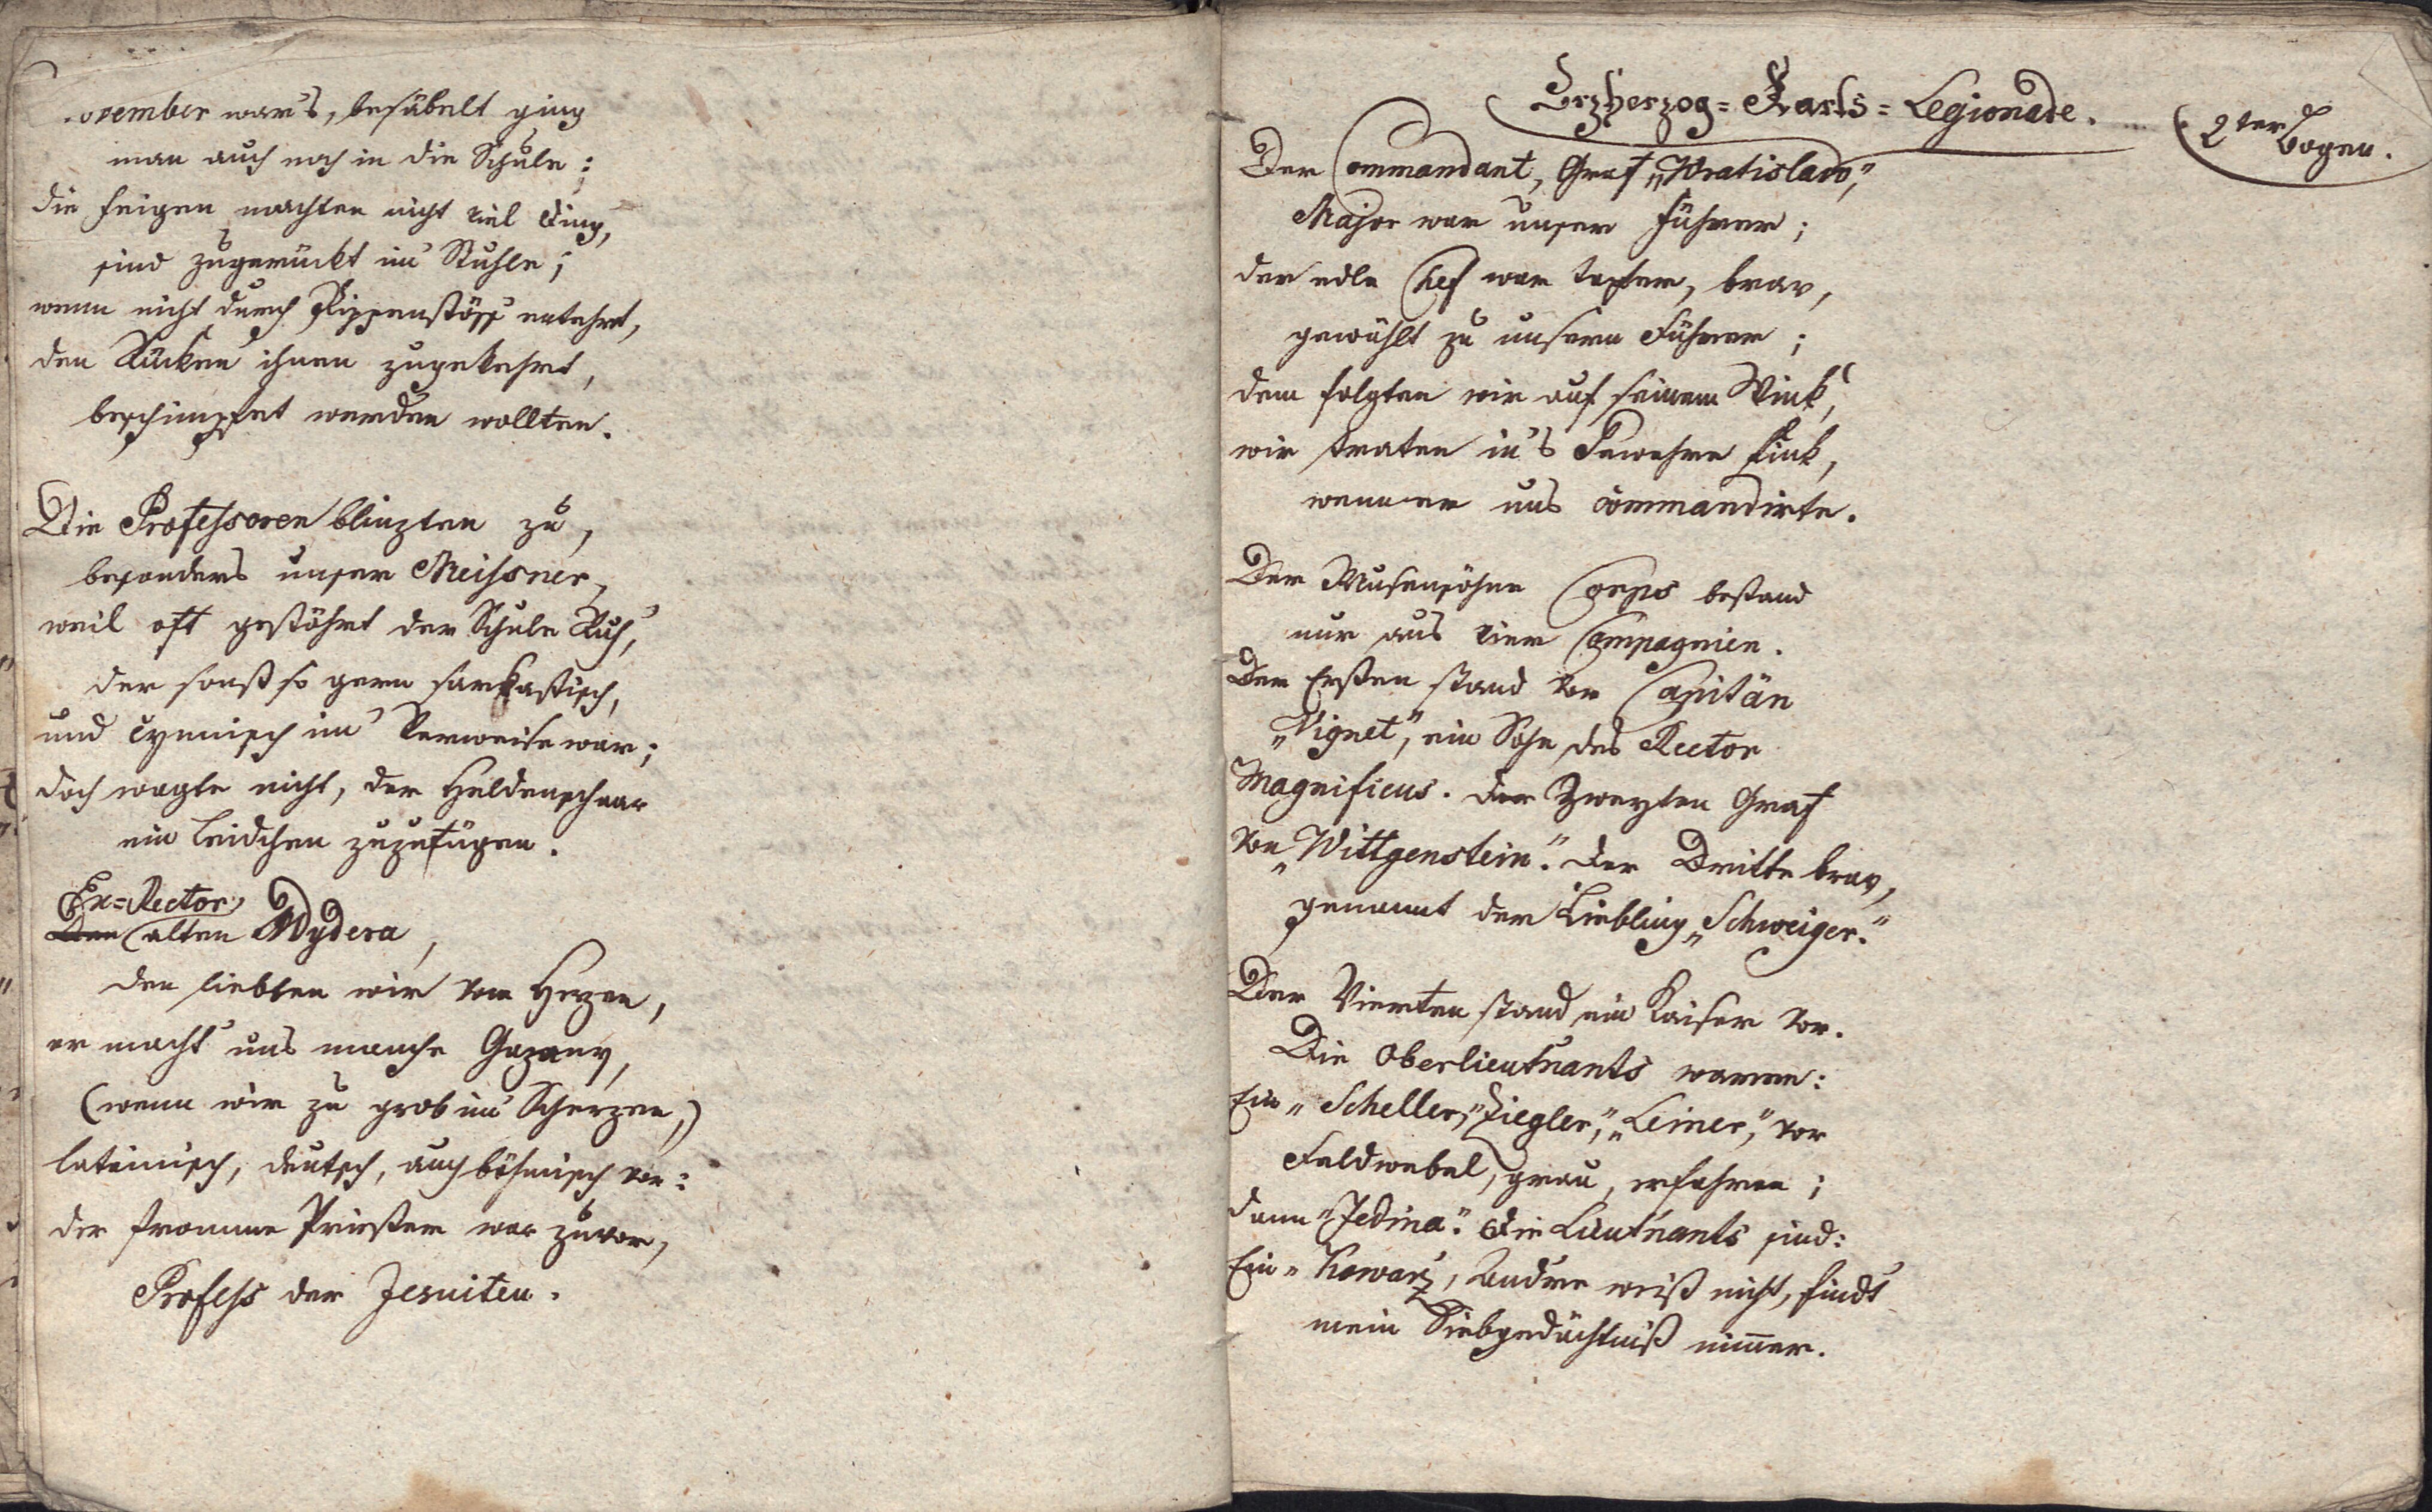 ovember war's, besäbelt ging
man auch noch in die Schule;
die Feigen machten nicht viel Ding,
sind zugerückt im Stuhle;
wenn nicht durch Rippenstöss' entehrt,
den Rücken ihnen zugekehrt,
beschimpfet werden wollten.
Die Professoren blinzten zu,
besonders unser Meissner,
weil oft gestöhrt der Schule Ruh',
der sonst so gern sarkastisch,
und cynnisch im Verweise war;
doch wagte nicht, der Heldenschaar
ein Leidchen zuzufügen.
Ex=Rector
Den alten Wydera,
den liebten wir von Herzen,
er macht' uns manche
(wenn wir zu grob im Scherzen,)
lateinisch, deutsch, auch böhmisch vor:
der fromme Priester war zuvor,
Profess der Jesuiten.
Erzherzog=Karls=Legionade.
2ter Bogen.
Der Commandant, Graf „Wratislaw,"
Major war unser Führer;
der edle Chef war tapfer, brav,
gewählt zu unserm Führer;
dem folgten wir auf seinem Wink,
wir traten in's Gewehre flink,
wenn er uns commandirte.
Der Musensöhne Corps bestand
nur aus vier Compagnien.
Der Ersten stand vor Capitän
„Vignet", ein Sohn des Rector
Magnificus. Der Zweyten Graf
von „Wittgenstein". Der Dritte brav,
genannt der Liebling „Schweiger."
Der Vierten stand ein Kaiser vor.
Die Oberlieutnants waren:
Ein „Scheller," „Ziegler," „Leiner," vor
Feldwebel, grau, erfahren;
dann „Jedina." Die Lieutnants sind:
Ein „Kowarz, Andre weiß nicht, findt
mein Siebgedächtniß nimmer.